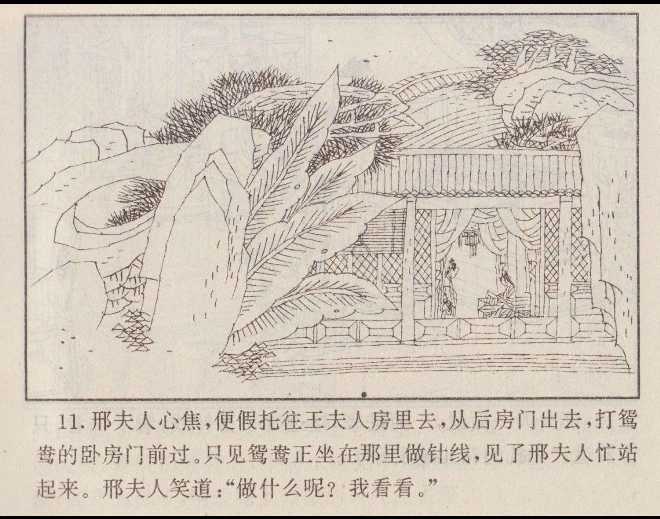 11. 邢夫人心焦，便假托往王夫人房里去，从后房门出去，打鸳
鸯的卧房门前过。只见鸳鸯正坐在那里做针线，见了邢夫人忙站
起来。邢夫人笑道：“做什么呢？我看看。”